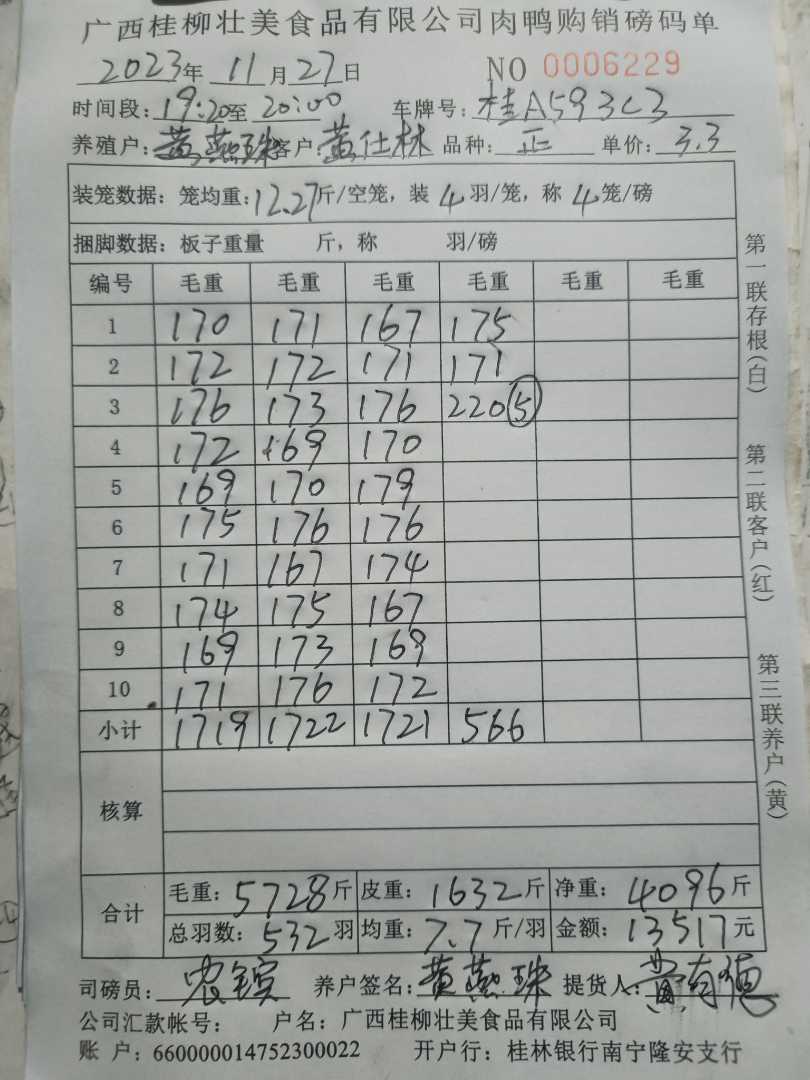 广西桂柳壮美食品有限公司肉鸭购销磅码单
2023年 11月27日 NO 0006229
时间段:19:20至20:00 车牌号:桂A593C3
养殖户:黄燕珠 客户:黄仕林 品种:正 单价:3.3
装笼数据:笼均重:12.27斤/空笼,装4羽/笼,称4笼/磅
捆脚数据:板子重量 斤,称 羽/磅
编号 毛重 毛重 毛重 毛重 毛重 毛重
1 170 171 167 175
2 172 172 171 171
3 176 173 176 220⑤
4 172 169 170
5 169 170 179
6 175 176 176
7 171 167 174
8 174 175 167
9 169 173 169
10 171 176 172
小计 1719 1722 1721 566
核算
合计 毛重:5728斤 皮重:1632斤 净重:4096斤
总羽数:532羽 均重:7.7斤/羽 金额:13517元
司磅员:农 养户签名:黄燕珠 提货人:黄有德
公司汇款帐号: 户名:广西桂柳壮美食品有限公司
账 户:660000014752300022 开户行:桂林银行南宁隆安支行
第一联存根(白)
第二联客户(红)
第三联养户(黄)